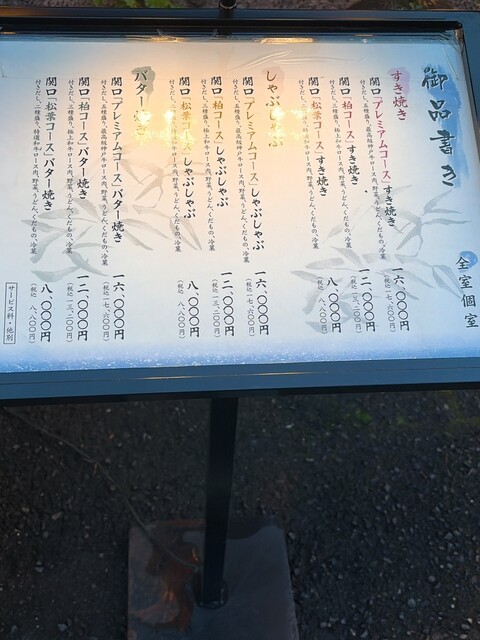 御品書き
全室個室
すき焼き
関口「プレミアムコース」すき焼き
付きだし、五種盛り、最高級神戸牛ロース肉、野菜、うどん、くだもの、冷菓
一六、〇〇〇円
(税込 一七、六〇〇円)
関口「柏コース」すき焼き
付きだし、三種盛り、極上和牛ロース肉、野菜、うどん、くだもの、冷菓
一二、〇〇〇円
(税込 一三、二〇〇円)
関口「松葉コース」すき焼き
付きだし、二種盛り、特選和牛ロース肉、野菜、うどん、くだもの、冷菓
八、〇〇〇円
(税込 八、八〇〇円)
しゃぶしゃぶ
関口「プレミアムコース」しゃぶしゃぶ
付きだし、五種盛り、最高級神戸牛ロース肉、野菜、うどん、くだもの、冷菓
一六、〇〇〇円
(税込 一七、六〇〇円)
関口「柏コース」しゃぶしゃぶ
付きだし、三種盛り、極上和牛ロース肉、野菜、うどん、くだもの、冷菓
一二、〇〇〇円
(税込 一三、二〇〇円)
関口「松葉コース」しゃぶしゃぶ
付きだし、二種盛り、特選和牛ロース肉、野菜、うどん、くだもの、冷菓
八、〇〇〇円
(税込 八、八〇〇円)
バター焼き
関口「プレミアムコース」バター焼き
付きだし、五種盛り、最高級神戸牛ロース肉、野菜、うどん、くだもの、冷菓
一六、〇〇〇円
(税込 一七、六〇〇円)
関口「柏コース」バター焼き
付きだし、三種盛り、極上和牛ロース肉、野菜、うどん、くだもの、冷菓
一二、〇〇〇円
(税込 一三、二〇〇円)
関口「松葉コース」バター焼き
付きだし、二種盛り、特選和牛ロース肉、野菜、うどん、くだもの、冷菓
八、〇〇〇円
(税込 八、八〇〇円)
サービス料・他別